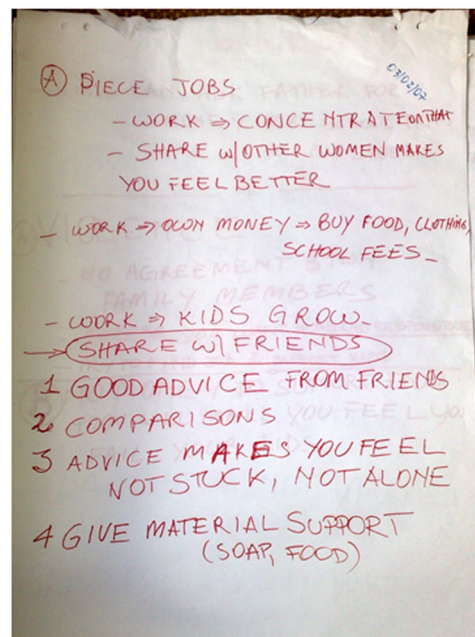 03/02/07
Ⓐ PIECE JOBS
- WORK ⇒ CONCENTRATE ON THAT
- SHARE W/ OTHER WOMEN MAKES
YOU FEEL BETTER
- WORK ⇒ OWN MONEY ⇒ BUY FOOD, CLOTHING,
SCHOOL FEES -
NO AGREEMENT
FAMILY MEMBERS
- WORK ⇒ KIDS GROW -
→ SHARE W/ FRIENDS
1 GOOD ADVICE FROM FRIENDS
2 COMPARISONS
YOU FEEL
3 ADVICE MAKES YOU FEEL
NOT STUCK, NOT ALONE
4 GIVE MATERIAL SUPPORT
(SOAP, FOOD)